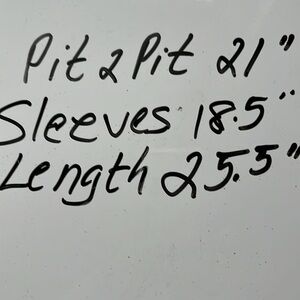 Pit 2 Pit 21"
Sleeves 18.5"
Length 25.5"